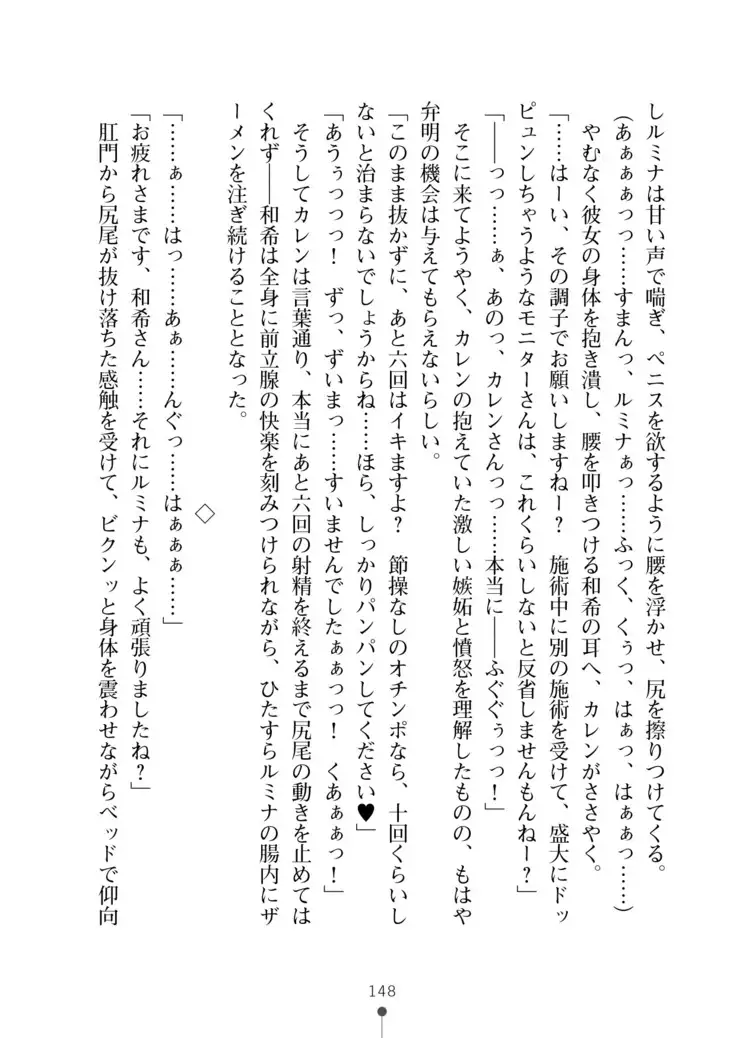 しルミナは甘い声で喘ぎ、ペニスを欲するように腰を浮かせ、尻を擦りつけてくる。
（あぁぁぁっっ……すまんっ、ルミナぁっ……ふっく、くぅっ、はぁっ、はぁぁっ……）
やむなく彼女の身体を抱き潰し、腰を叩きつける和希の耳へ、カレンがささやく。
「……はーい、その調子でお願いしますねー？　施術中に別の施術を受けて、盛大にドッ
ピュンしちゃうようなモニターさんは、これくらいしないと反省しませんもんねー？」
「――っっ……ぁ、あのっ、カレンさんっっ……本当に――ふぐぐぅっっ！」
そこに来てようやく、カレンの抱えていた激しい嫉妬と憤怒を理解したものの、もはや
弁明の機会は与えてもらえないらしい。
「このまま抜かずに、あと六回はイキますよ？　節操なしのオチンポなら、十回くらいし
ないと治まらないでしょうからね……ほら、しっかりパンパンしてください♥」
「あうぅっっっ！　ずっ、ずいまっ……すいませんでしたぁぁっっ！　くあぁぁっ！」
そうしてカレンは言葉通り、本当にあと六回の射精を終えるまで尻尾の動きを止めては
くれず――和希は全身に前立腺の快楽を刻みつけられながら、ひたすらルミナの腸内にザ
ーメンを注ぎ続けることとなった。
◇
「……ぁ……はっ……あぁ……んぐっ……はぁぁぁ……」
「お疲れさまです、和希さん……それにルミナも、よく頑張りましたね？」
肛門から尻尾が抜け落ちた感触を受けて、ビクンッと身体を震わせながらベッドで仰向
148